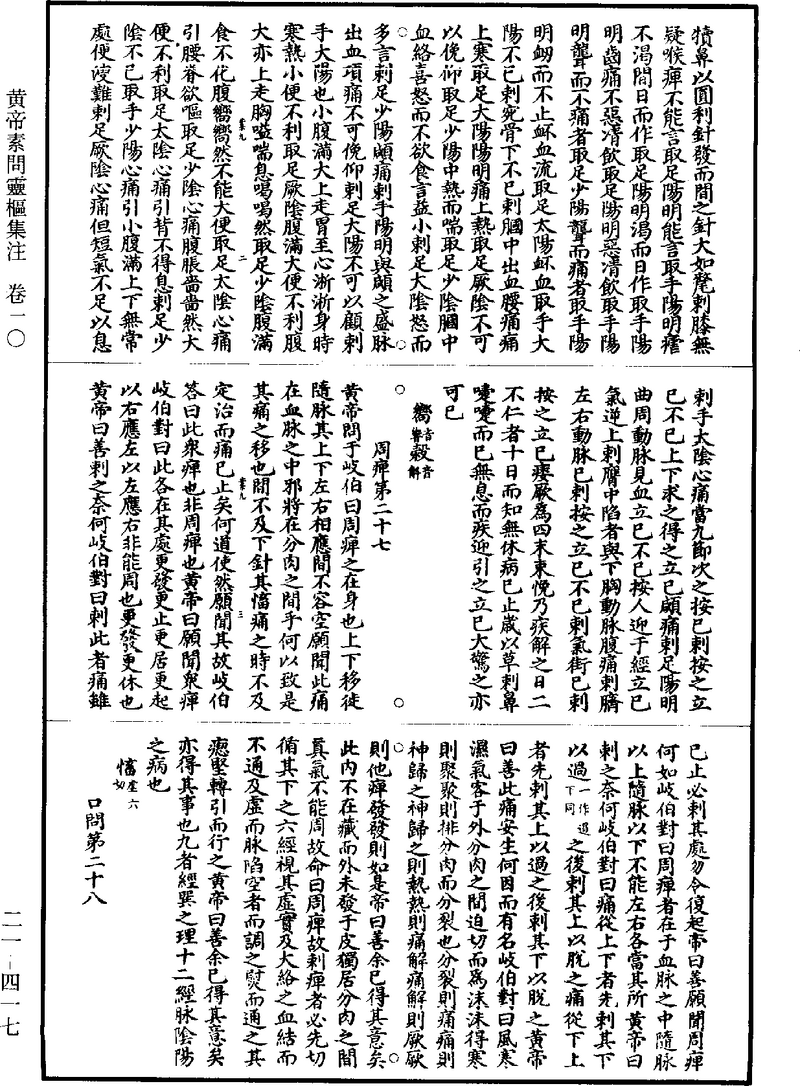 黃帝素問靈樞集注　卷一〇
二一－四一七
犢鼻以圓利針發而間之針大如氂刺膝無
疑喉痺不能言取足陽明能言取手陽明瘧
不渴間日而作取足陽明渴而日作取手陽
明齒痛不惡清飲取足陽明惡清飲取手陽
明聾而不痛者取足少陽聾而痛者取手陽
明衂而不止衃血流取足太陽衃血取手太
陽不已刺宛骨下不已刺膕中出血腰痛痛
上寒取足太陽陽明痛上熱取足厥陰不可
以俛仰取足少陽中熱而喘取足少陰膕中
血絡喜怒而不欲食言益小刺足太陰怒而
多言刺足少陽顑痛刺手陽明與顑之盛脉
出血項痛不可俛仰刺足太陽不可以顧刺
手太陽也小腹滿大上走胃至心淅淅身時
寒熱小便不利取足厥陰腹滿大便不利腹
大亦上走胸嗌喘息喝喝然取足少陰腹滿
食不化腹嚮嚮然不能大便取足太陰心痛
引腰脊欲嘔取足少陰心痛腹脹嗇嗇然大
便不利取足太陰心痛引背不得息刺足少
陰不已取手少陽心痛引小腹滿上下無常
處便溲難刺足厥陰心痛但短氣不足以息
刺手太陰心痛當九節次之按已刺按之立
已不已上下求之得之立已顑痛刺足陽明
曲周動脉見血立已不已按人迎于經立已
氣逆上刺膺中陷者與下胸動脉腹痛刺臍
左右動脉已刺按之立已不已刺氣街已刺
按之立已痿厥爲四末束悗乃疾解之日二
不仁者十日而知無休病已止歲以草刺鼻
嚏嚏而已無息而疾迎引之立已大驚之亦
可已
嚮音響㲉音斛
周痺第二十七
黃帝問于岐伯曰周痺之在身也上下移徙
隨脉其上下左右相應間不容空願聞此痛
在血脉之中邪將在分肉之間乎何以致是
其痛之移也間不及下針其慉痛之時不及
定治而痛已止矣何道使然願聞其故岐伯
答曰此衆痺也非周痺也黃帝曰願聞衆痺
岐伯對曰此各在其處更發更止更居更起
以右應左以左應右非能周也更發更休也
黃帝曰善刺之奈何岐伯對曰刺此者痛雖
已止必刺其處勿令復起帝曰善願聞周痺
何如岐伯對曰周痺者在于血脉之中隨脉
以上隨脉以下不能左右各當其所黃帝曰
刺之奈何岐伯對曰痛從上下者先刺其下
以過一作遏下同之後刺其上以脫之痛從下上
者先刺其上以過之後刺其下以脫之黃帝
曰善此痛安生何因而有名岐伯對曰風寒
濕氣客于外分肉之間迫切而爲沫沫得寒
則聚聚則排分肉而分裂也分裂則痛痛則
神歸之神歸之則熱熱則痛解痛解則厥厥
則他痺發發則如是帝曰善余已得其意矣
此内不在藏而外未發于皮獨居分肉之間
真氣不能周故命曰周痺故刺痺者必先切
循其下之六經視其虛實及大絡之血結而
不通及虛而脉陷空者而調之熨而通之其
瘛堅轉引而行之黃帝曰善余已得其意矣
亦得其事也九者經巽之理十二經脉陰陽
之病也
慉六切
口問第二十八